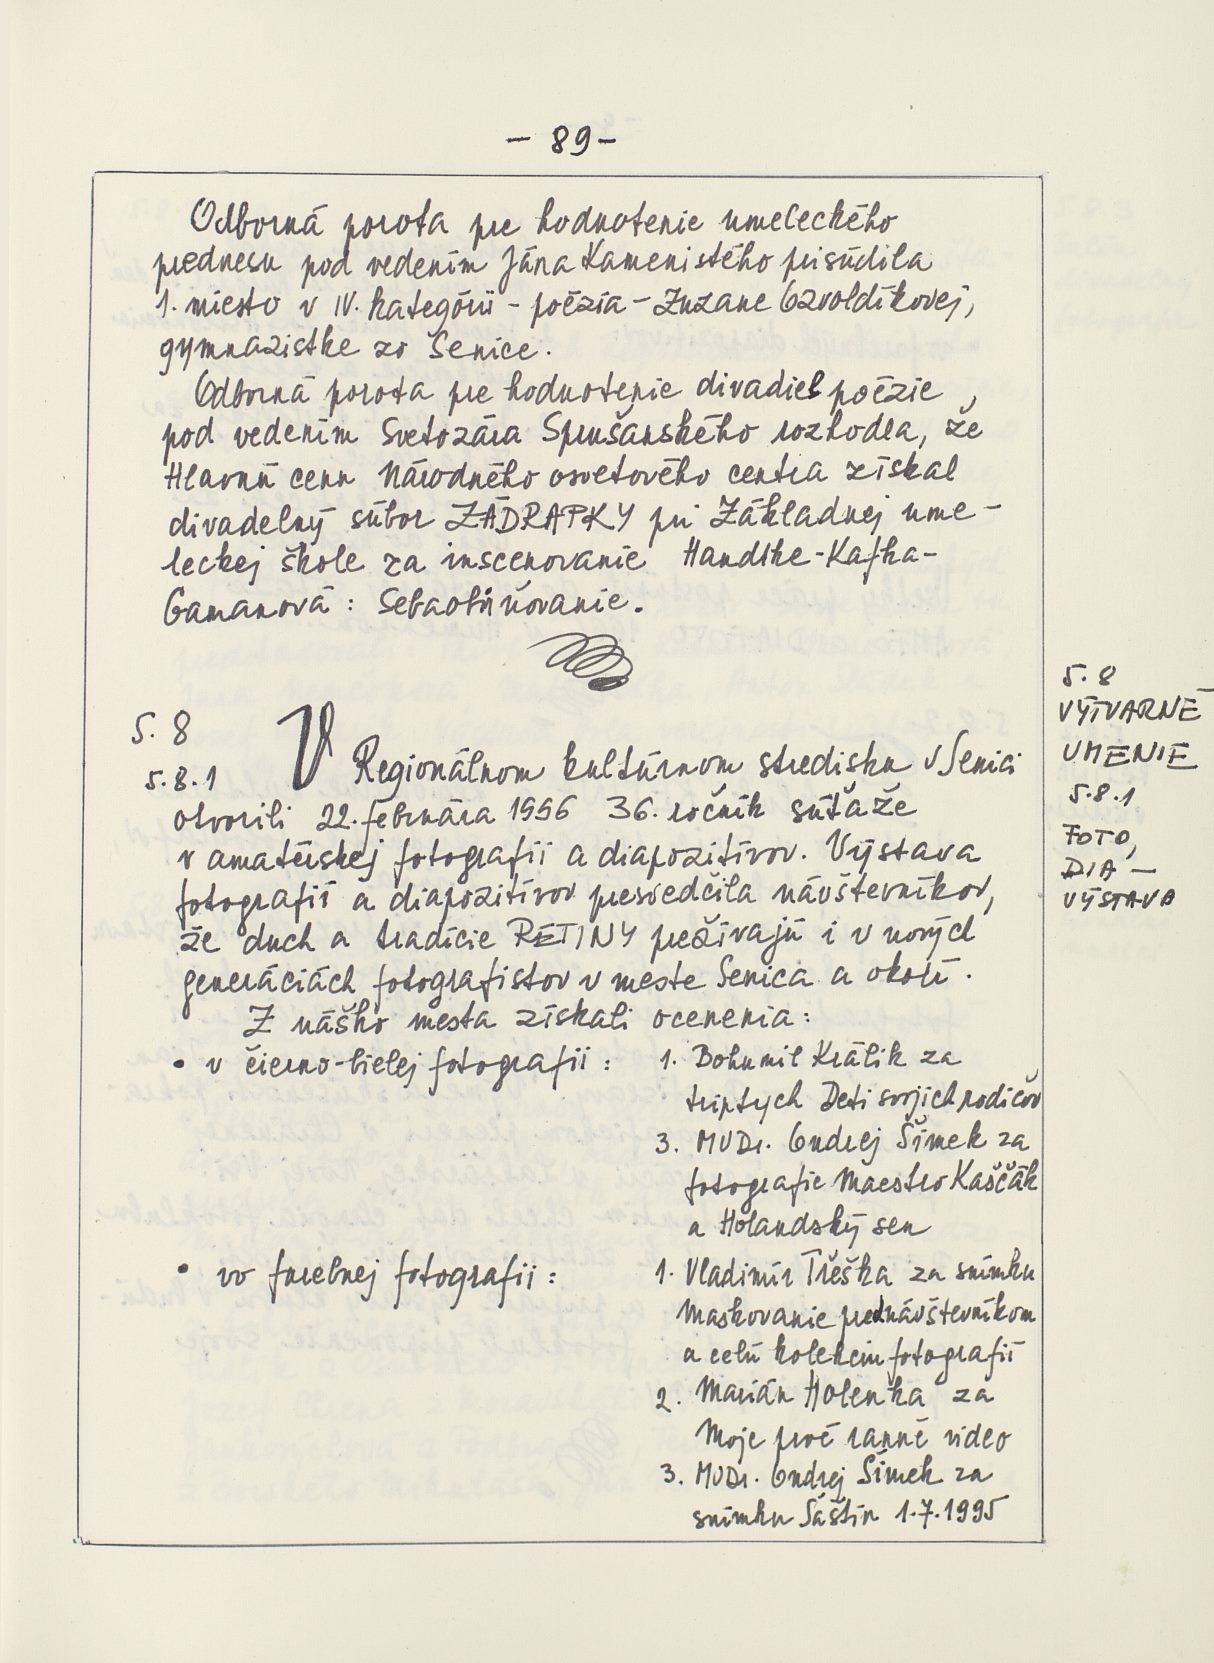 - 89 -
Odborná porota pre hodnotenie umeleckého
prednesu pod vedením Jána Kamenistého prisúdila
1. miesto v IV. kategórii - poézia - Zuzane Gzvoldíkovej,
gymnazistke zo Senice.
Odborná porota pre hodnotenie divadiel poézie,
pod vedením Svetozára Sprušanského rozhodla, že
Hlavnú cenu Národného osvetového centra získal
divadelný súbor ZÁDRAPKY pri Základnej ume-
leckej škole za inscenovanie Handtke-Kafka-
Gamanová : Sebaobviňovanie.
5.8
VÝTVARNÉ
UMENIE
5.8.1
FOTO,
DIA -
VÝSTAVA
5.8
5.8.1 V Regionálnom kultúrnom stredisku v Senici
otvorili 22. februára 1996 36. ročník súťaže
v amatérskej fotografii a diapozitívov. Výstava
fotografií a diapozitívov presvedčila návštevníkov,
že duch a tradície RETINY prežívajú i v nových
generáciách fotografistov v meste Senica a okolí.
Z nášho mesta získali ocenenia:
• v čierno-bielej fotografii : 1. Bohumil Králik za
triptych Deti svojich rodičov
3. MUDr. Ondrej Šimek za
fotografie Maestro Kaščák
a Holandský sen
• vo farebnej fotografii : 1. Vladimír Třeška za snímku
Maskovanie pred návštevníkom
a celú kolekciu fotografií
2. Marián Holenka za
Moje prvé ranné video
3. MUDr. Ondrej Šimek za
snímku Šaštín 1.7.1995